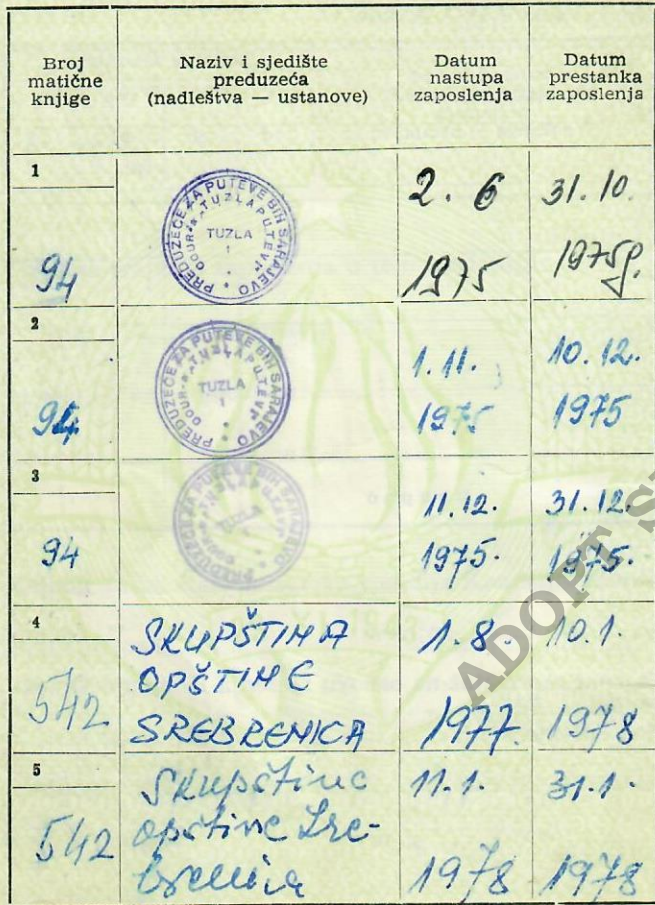 Broj matične knjige
Naziv i sjedište preduzeća (nadleštva — ustanove)
Datum nastupa zaposlenja
Datum prestanka zaposlenja
1
94
PREDUZEĆE ZA PUTEVE BIH SARAJEVO
OOUR-a „TUZLAPUTEVI"
TUZLA
1
2. 6
1975
31. 10.
1975g.
2
94
PREDUZEĆE ZA PUTEVE BIH SARAJEVO
OOUR-a „TUZLAPUTEVI"
TUZLA
1
1. 11.
1975
10. 12.
1975
3
94
PREDUZEĆE ZA PUTEVE BIH SARAJEVO
TUZLA
11. 12.
1975.
31. 12.
1975.
4
542
SKUPŠTINA
OPŠTINE
SREBRENICA
1. 8.
1977.
10. 1.
1978
5
542
Skupština
opštine Sre-
brenica
11. 1.
1978
31. 1.
1978
ADOPT